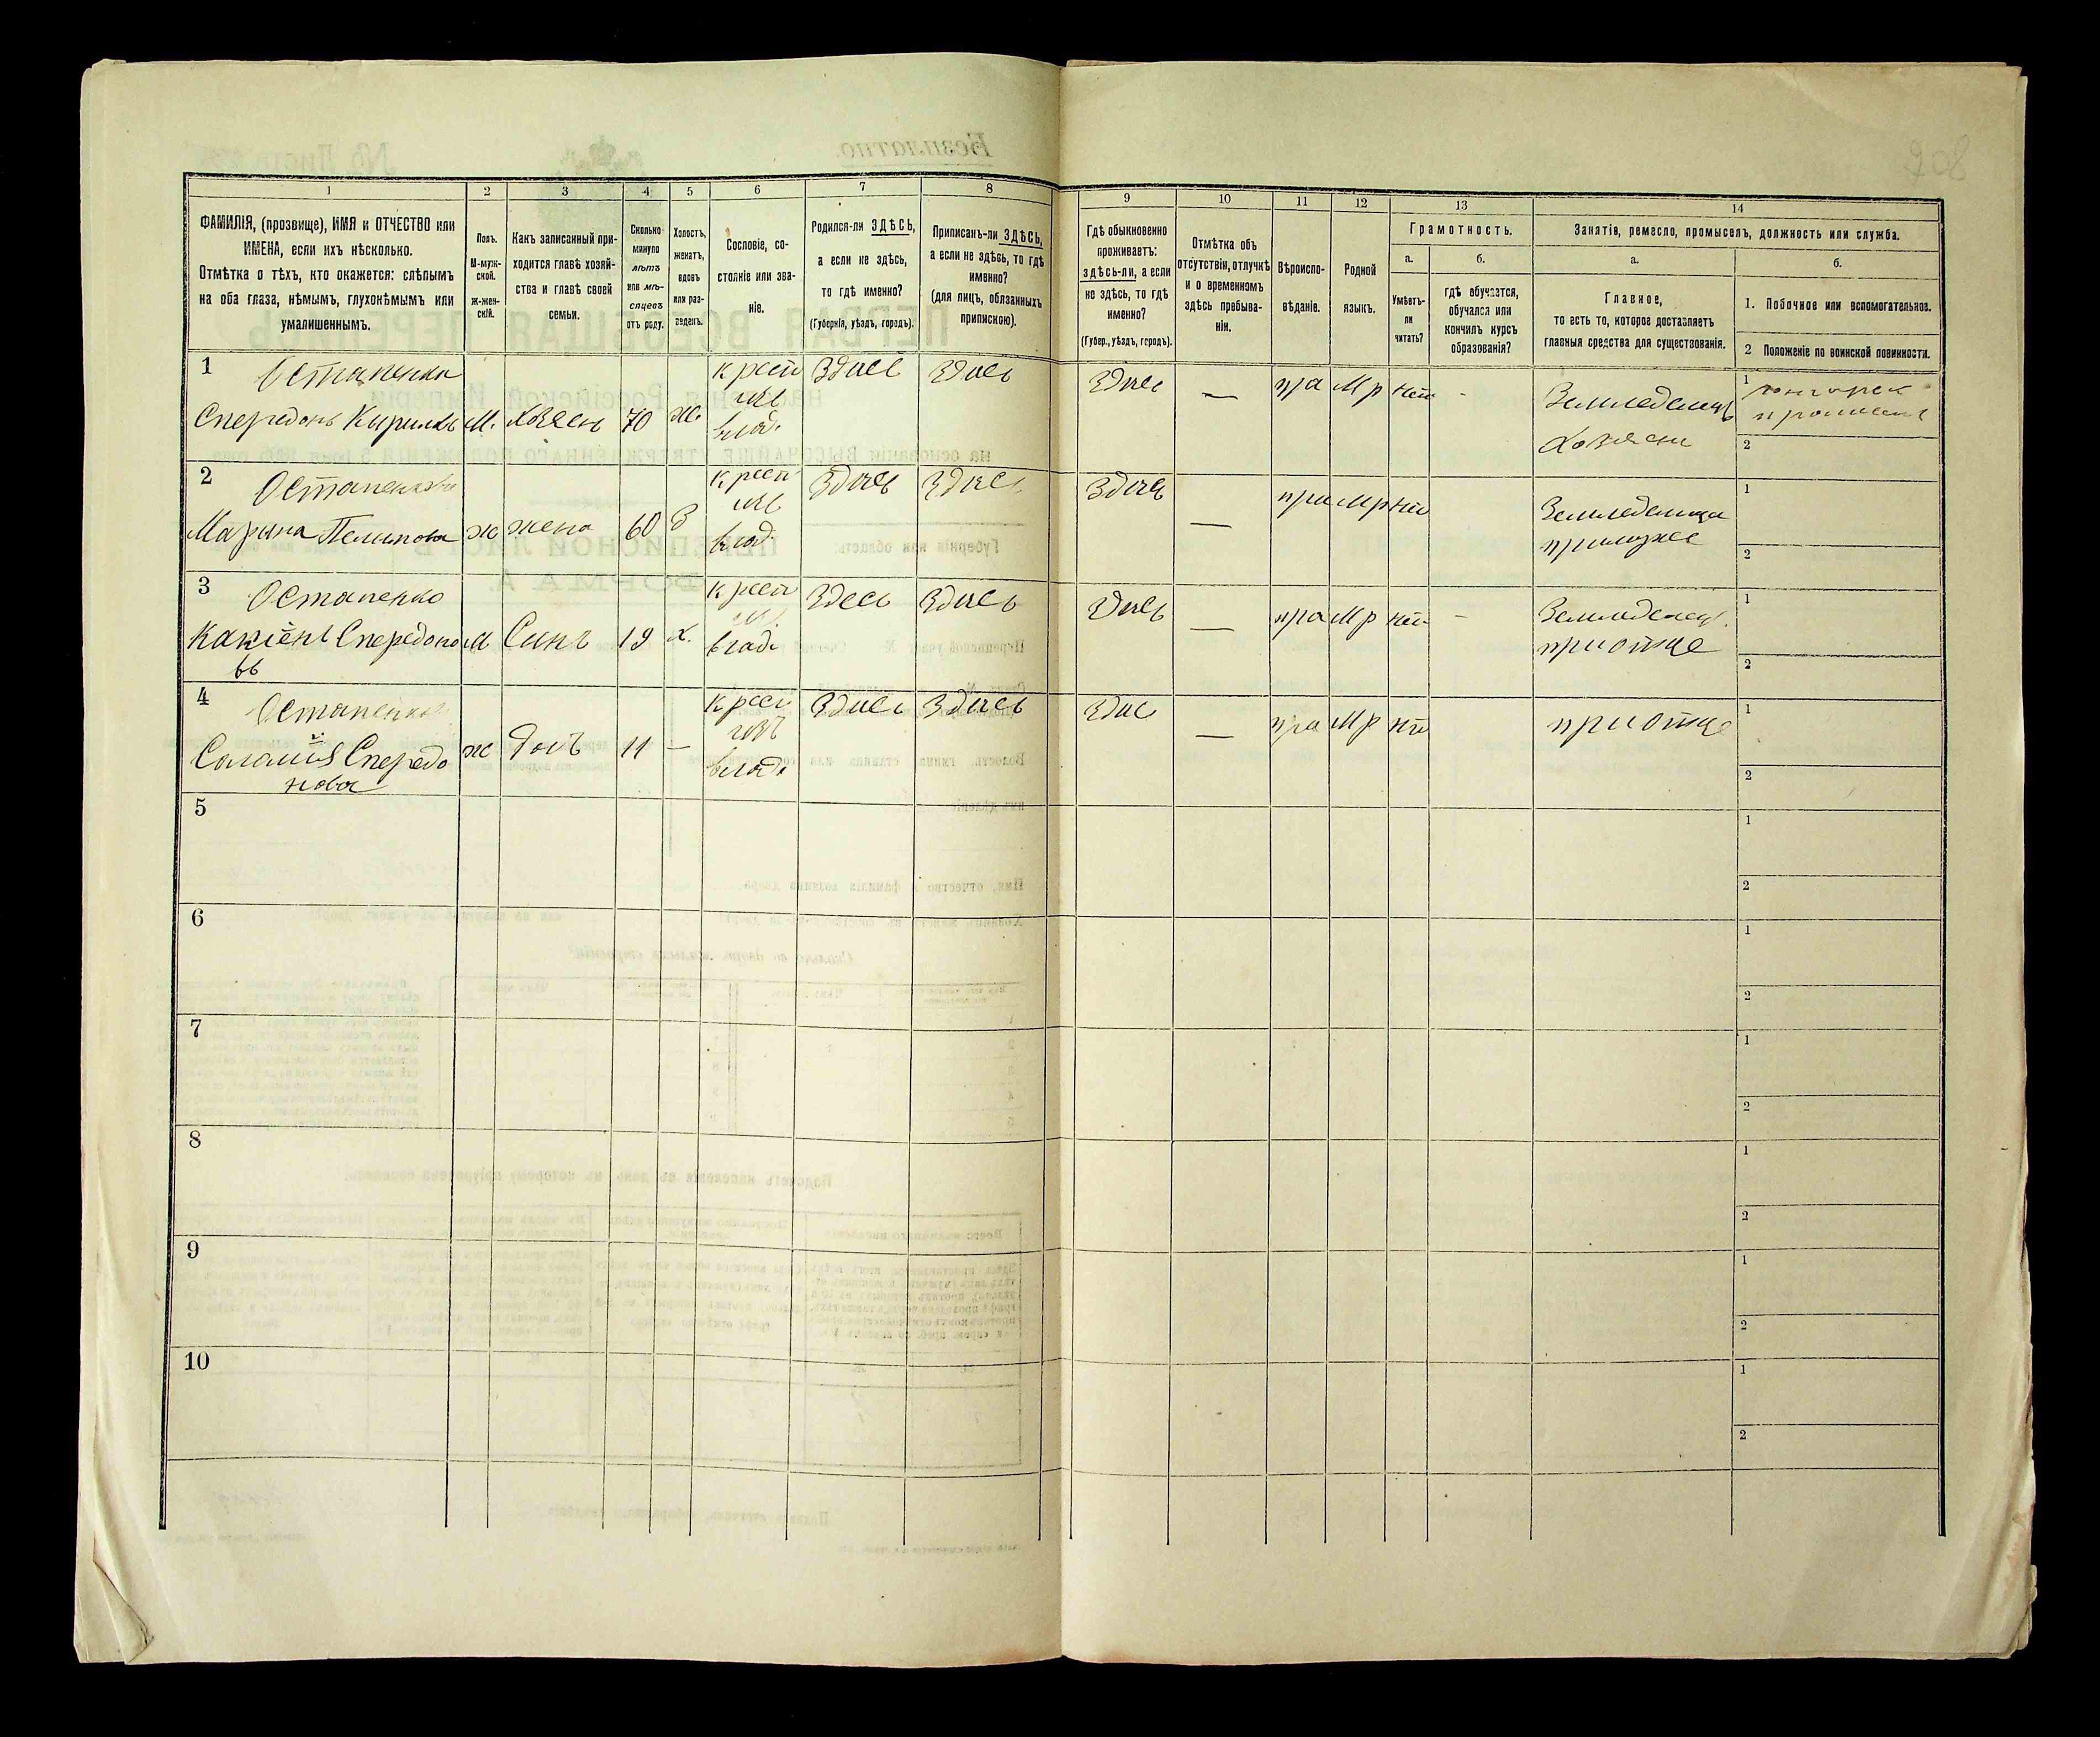 908
1
2
3
4
5
6
7
8
9
10
11
12
13
14
ФАМИЛІЯ, (прозвище), ИМЯ и ОТЧЕСТВО или
ИМЕНА, если ихъ нѣсколько.
Отмѣтка о тѣхъ, кто окажется: слѣпымъ
на оба глаза, нѣмымъ, глухонѣмымъ или
умалишеннымъ.
Полъ.
М-муж-
ской.
ж-жен-
скій.
Какъ записанный при-
ходится главѣ хозяй-
ства и главѣ своей
семьи.
Сколько
минуло
лѣтъ
или мѣ-
сяцевъ
отъ роду.
Холостъ,
женатъ,
вдовъ
или раз-
веденъ.
Сословіе, со-
стояніе или зва-
ніе.
Родился-ли ЗДѢСЬ,
а если не здѣсь,
то гдѣ именно?
(Губернія, уѣздъ, городъ).
Приписанъ-ли ЗДѢСЬ,
а если не здѣсь, то гдѣ
именно?
(для лицъ, обязанныхъ
припискою).
Гдѣ обыкновенно
проживаетъ:
здѣсь-ли, а если
не здѣсь, то гдѣ
именно?
(Губер., уѣздъ, городъ).
Отмѣтка объ
отсутствіи, отлучкѣ
и о временномъ
здѣсь пребыва-
ніи.
Вѣроиспо-
вѣданіе.
Родной
языкъ.
Грамотность.
а.
Умѣетъ-
ли
читать?
б.
гдѣ обучается,
обучался или
кончилъ курсъ
образованія?
Занятія, ремесло, промыселъ, должность или служба.
а.
Главное,
то есть то, которое доставляетъ
главныя средства для существованія.
б.
1. Побочное или вспомогательное.
2 Положеніе по воинской повинности.
1
Остапенко
Спередонъ Кириловъ
М.
хозяенъ
70
ж.
крест
изъ
влад.
Здись
Здись
Здись
—
пра
Мр
нет
-
Земледелецъ
Хозяенъ
1
2
2
Остапенкова
Марына Пелыпова
ж
жена
60
З
крест
изъ
влад.
Здись
Здись
Здись
—
пра
Мр
нет
Земледелица
примуже
1
2
3
Остапенко
Спередоно
въ
М
Синъ
19
х.
крест
влад.
Здесь
Здись
Здись
—
пра
Мр
нет
-
Земледелец.
приотце
1
2
4
Остапенкова
Спередо
нова
ж
Дочъ
11
—
крест
изъ
влад.
Здись
Здись
Здис
—
пра
Мр
нет
приотце
1
2
5
1
2
6
1
2
7
1
2
8
1
2
9
1
2
10
1
2